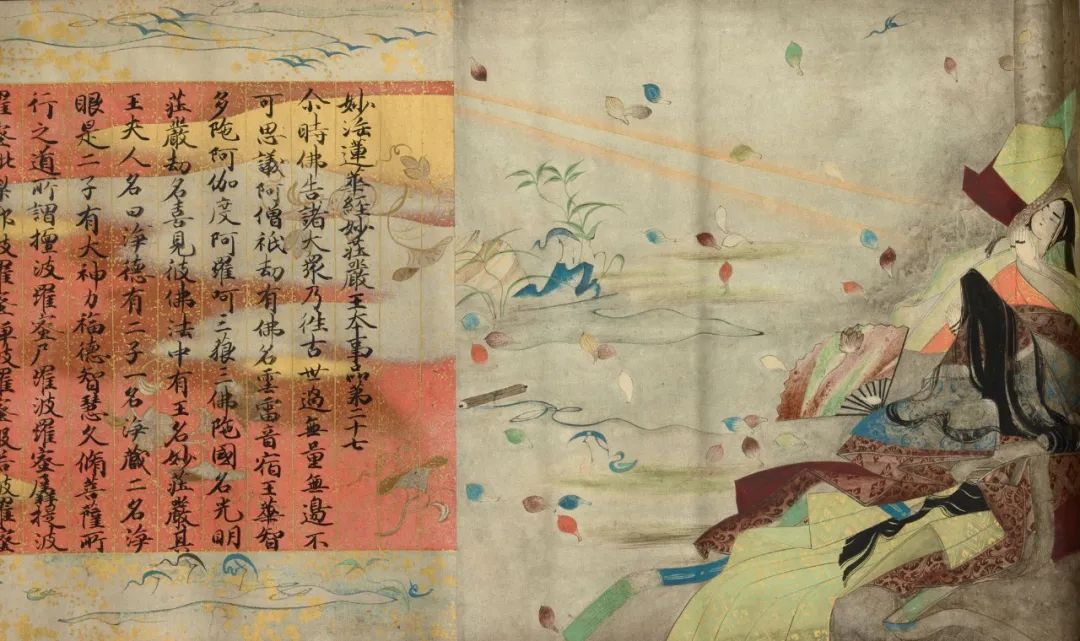 妙法蓮華經妙莊嚴王本事第二十七
尒時佛告諸大衆乃往古世過無量無邊不
可思議阿僧祇劫有佛名雲雷音宿王華智
多陀阿伽度阿羅呵三藐三佛陀國名光明
莊嚴劫名喜見彼佛法中有王名妙莊嚴其
王夫人名曰淨德有二子一名淨藏二名淨
眼是二子有大神力福德智慧久脩菩薩所
行之道所謂檀波羅蜜尸羅波羅蜜羼提波
羅蜜毗梨耶波羅蜜禪波羅蜜般若波羅蜜